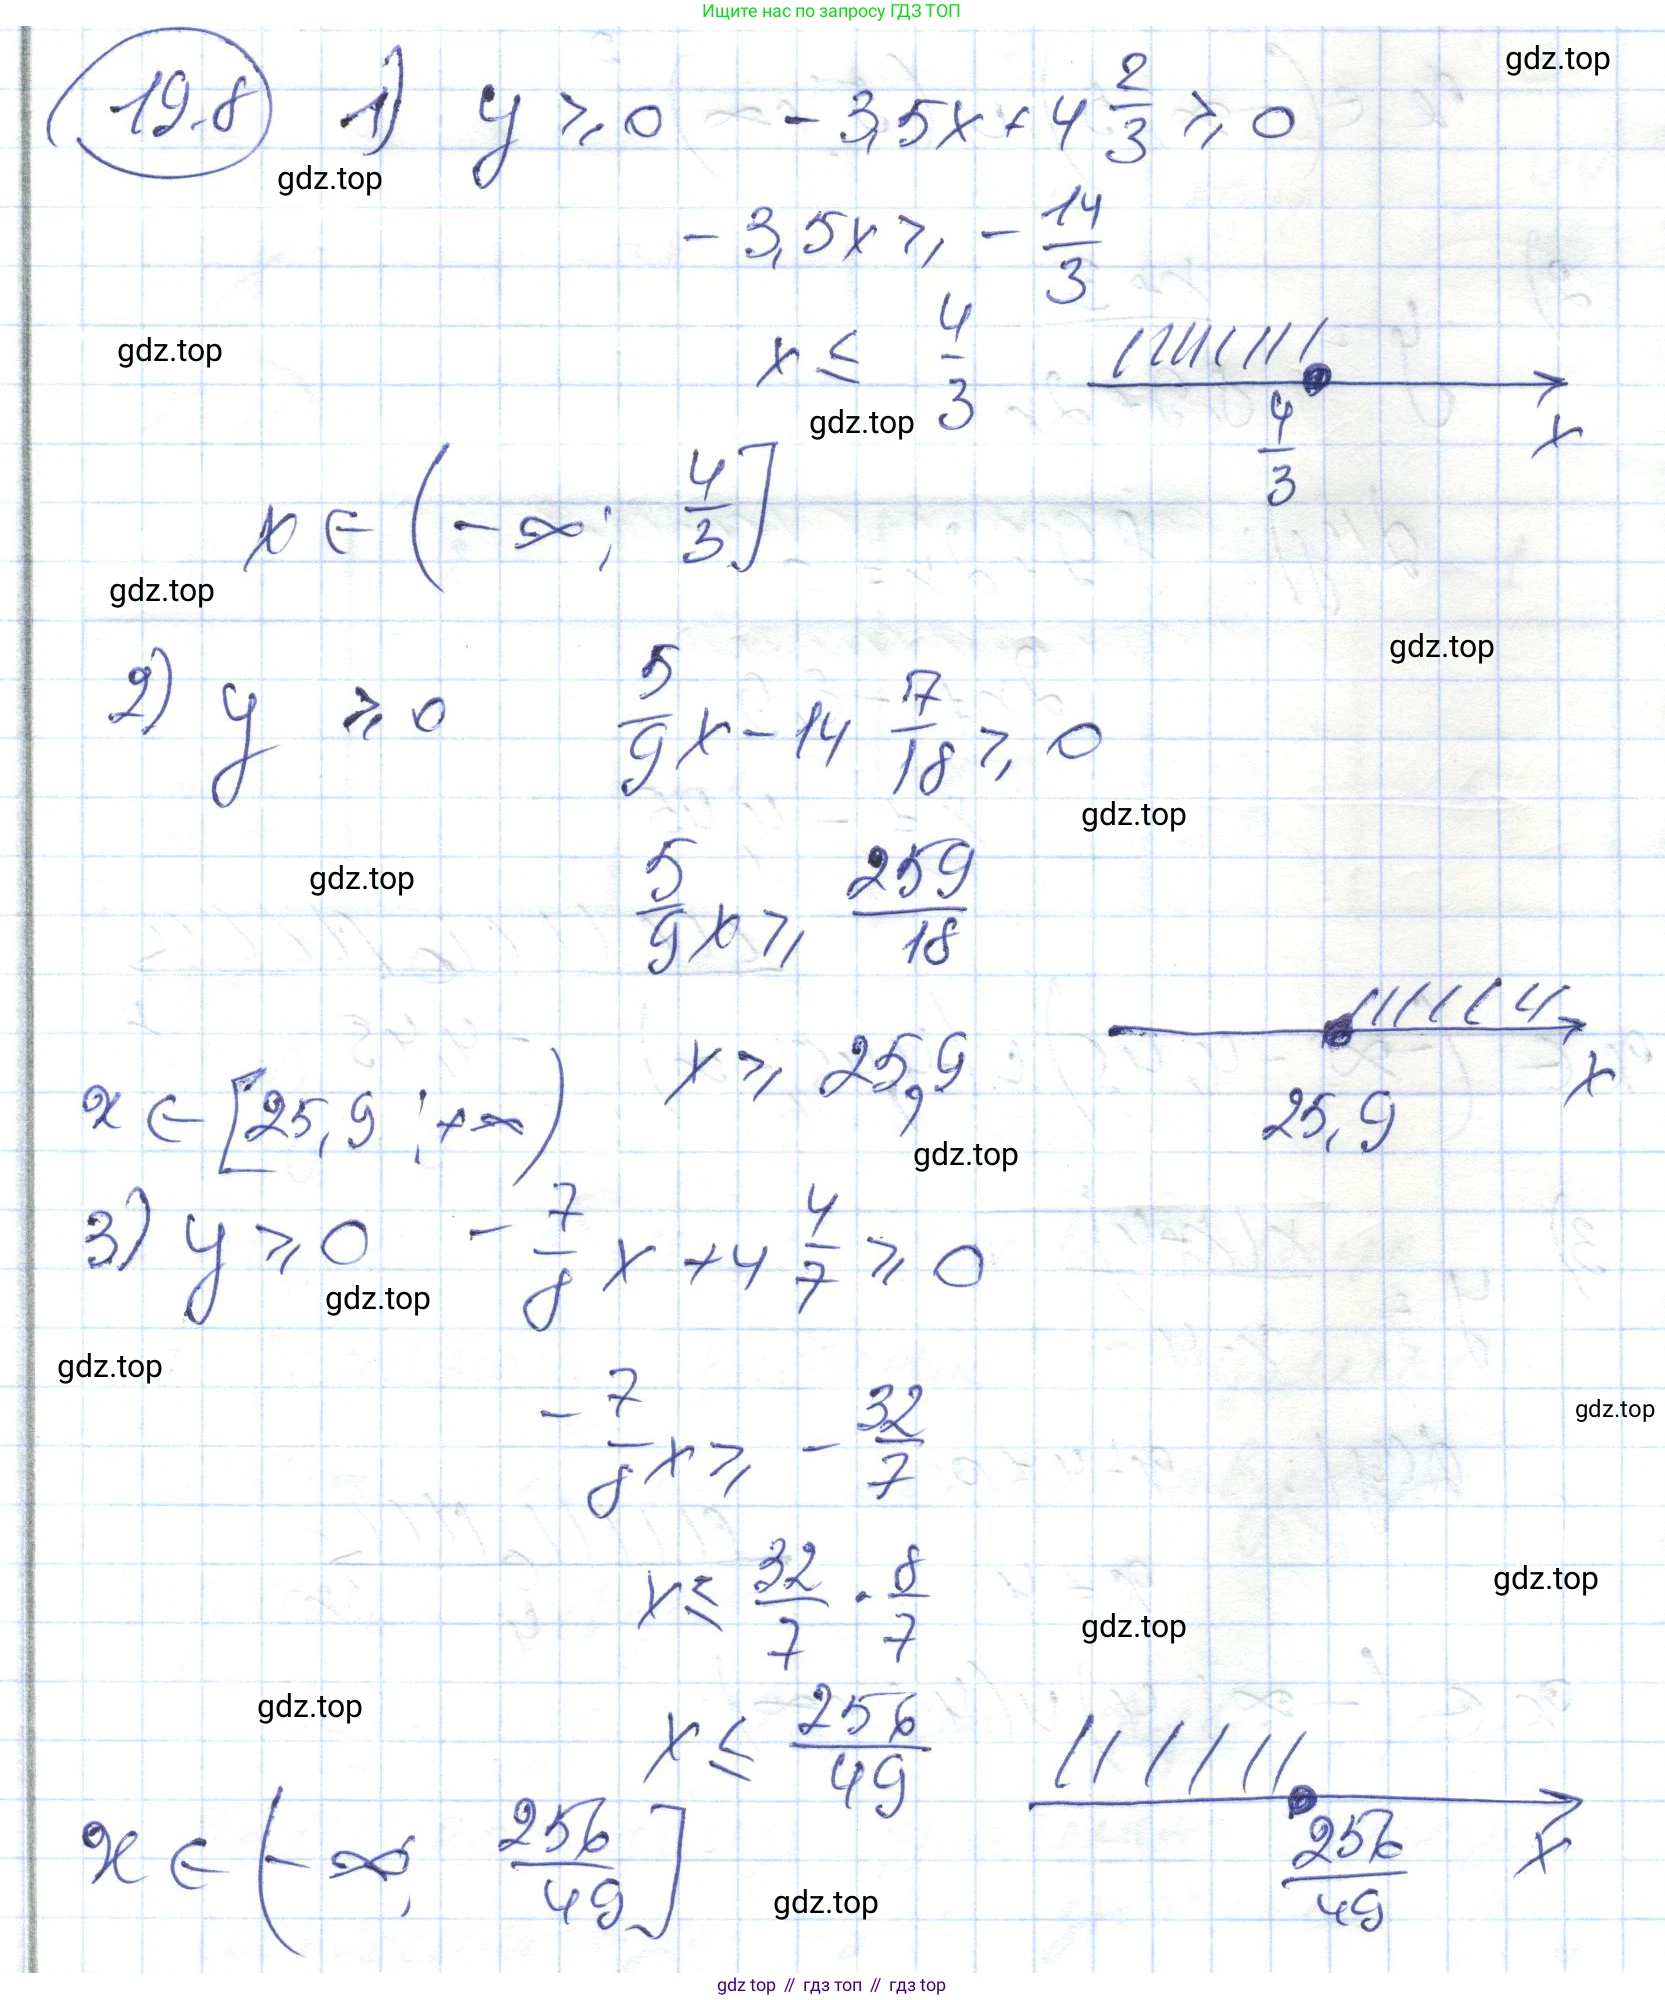 Ищите нас по запросу ГДЗ ТОП
19.8 1) y ≥ 0 - 3,5x + 4 2/3 ≥ 0
gdz.top
gdz.top
- 3,5x ≥ - 14/3
gdz.top
x ≤ 4/3
gdz.top
4/3 x
x ∈ (-∞; 4/3]
gdz.top
gdz.top
2) y ≥ 0 5/9 x - 14 7/18 ≥ 0
gdz.top
gdz.top
5/9 x ≥ 259/18
x ≥ 25,9
25,9 x
x ∈ [25,9 ; +∞)
gdz.top
3) y ≥ 0 - 7/8 x + 4 4/7 ≥ 0
gdz.top
gdz.top
- 7/8 x ≥ - 32/7
gdz.top
x ≤ 32/7 · 8/7
gdz.top
gdz.top
gdz.top
x ≤ 256/49
256/49 x
x ∈ (-∞; 256/49]
gdz.top
gdz top // гдз топ // гдз top